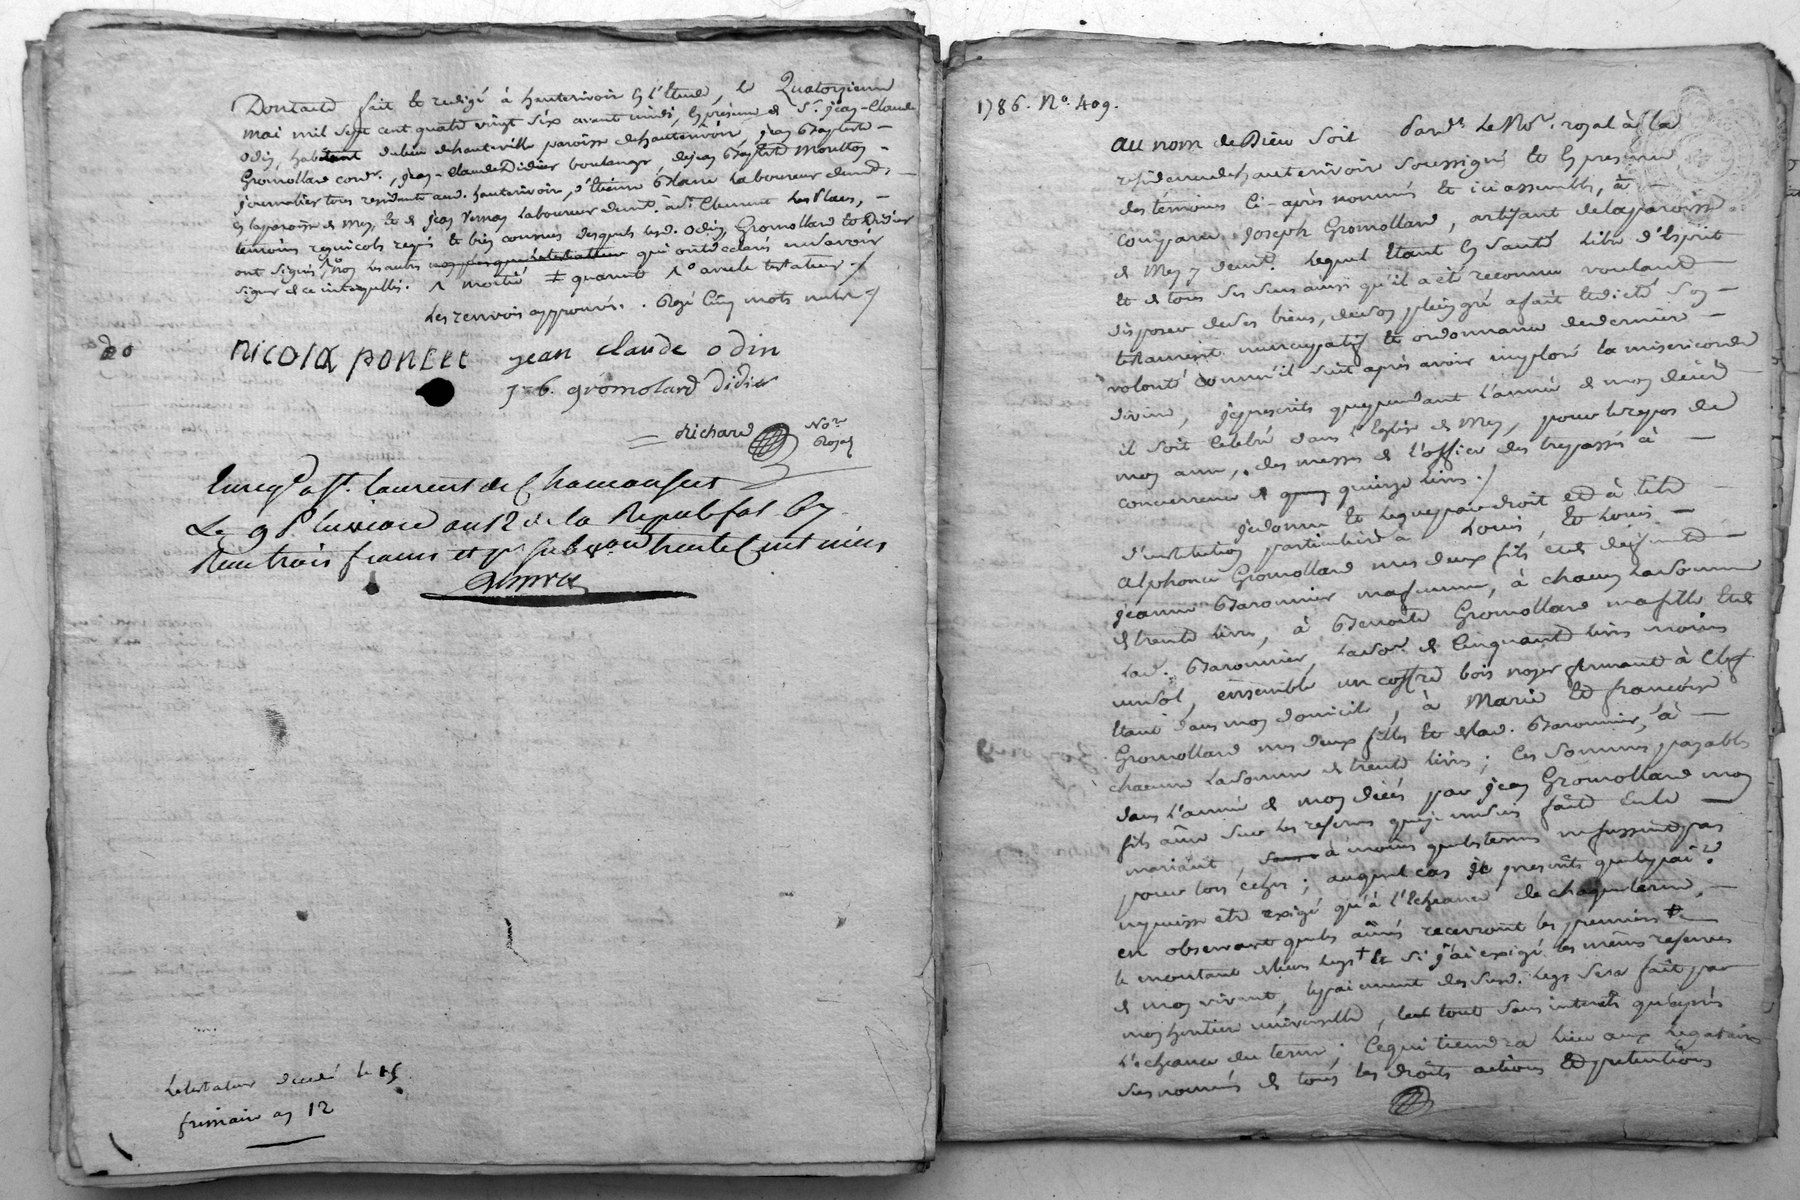 Dont acte fait et redigé à hauterivoir en l'Etude, le Quatorzieme
mai mil sept cent quatre vingt six avant midi, en presence de Sr. jean-Claude
odin, habitant du lieu de hauteville paroisse de hauterivoir, jean Baptiste
Gromollard cordr., jean-Claude Didier boulanger, de jean Baptiste Moullon
journalier tous residents aud. hauterivoir, d'Etienne Blanc Laboureur demt.
en la paroisse de Mey, et de jean Vernay Laboureur demt. à St. Clement Les Places,
temoins regnicols requis et bien connus desquels lesd. odin, Gromollard et Didier
ont signés, non les autres qui ont declarés ne savoir
signer de ce interpellés. 1 moitié ‡ quarante 1° avec le testateur /
Les renvois approuvés. Rayé Cinq mots nuls /
Nicola Poncet jean claude odin
j-b. gromolard didier
Richard Nore. Royal
Enregt. à St. laurent de Chamousset
Le 9 Pluviose an 12 de la Republe. fol. 69
Reçu trois francs et pr. subvon trente Centimes
Le testateur decedé le 15
frimaire an 12
1786. No. 409.
Au nom de Dieu soit Pardt. Le Nore. royal à la
residence de hauterivoir soussigné et En presence
des témoins Ci-après nommés et ici assemblés, à
comparu Joseph Gromollard, artisant de la paroisse
de Mey y demt. Lequel Etant En santé Libre d'Esprit
et de tous ses sens ainsi qu'il a été reconnu voulant
disposer de ses biens, de son plein gré a fait et dicté son
testament nuncupatif et ordonnance de derniere
volonté comm'il suit après avoir imploré la misericorde
divine, je prescrits que pendant l'année de mon décéd
il soit Celebré dans l'Eglise de Mey, pour le repos de
mon ame, des messes de l'office des trepassés à
concurrence de quinze livres /
je donne et Legue par droit et à titre
d'institution particuliere à Louis, et Louis
alphonce Gromollard mes deux fils et de defunte
jeanne Baronnier ma femme, à chacun La somme
de trente livres, à Benoite Gromollard ma fille et de
Lad. Baronnier, La some. de Cinquante livres moins
un sol, ensemble un coffre bois noyer fermant à Clef
Etant dans mon domicile, à Marie et francoise
Gromollard mes deux filles et de lad. Baronnier, à
chacune La somme de trente livres; Ces sommes payables
dans l'année de mon décés par jean Gromollard mon
fils aîné sur les reserves que je me suis fait En le
mariant, à moins que les termes ne fussent pas
pour lors Echus; auquel cas je prescrits que le paiemt.
ne puisse etre exigé qu'à l'Echeance de chaque terme,
en observant que les ainés recevront les premiers
le montant de leurs legs † Et si j'ai exigé les mêmes reserves
de mon vivant, le paiement des susd. Legs sera fait par
mon heritier universelle, le tout sans interets qu'après
L'echeance du terme; Ce qui tiendra Lieu aux Legataires
susnommés de tous les droits actions et pretentions